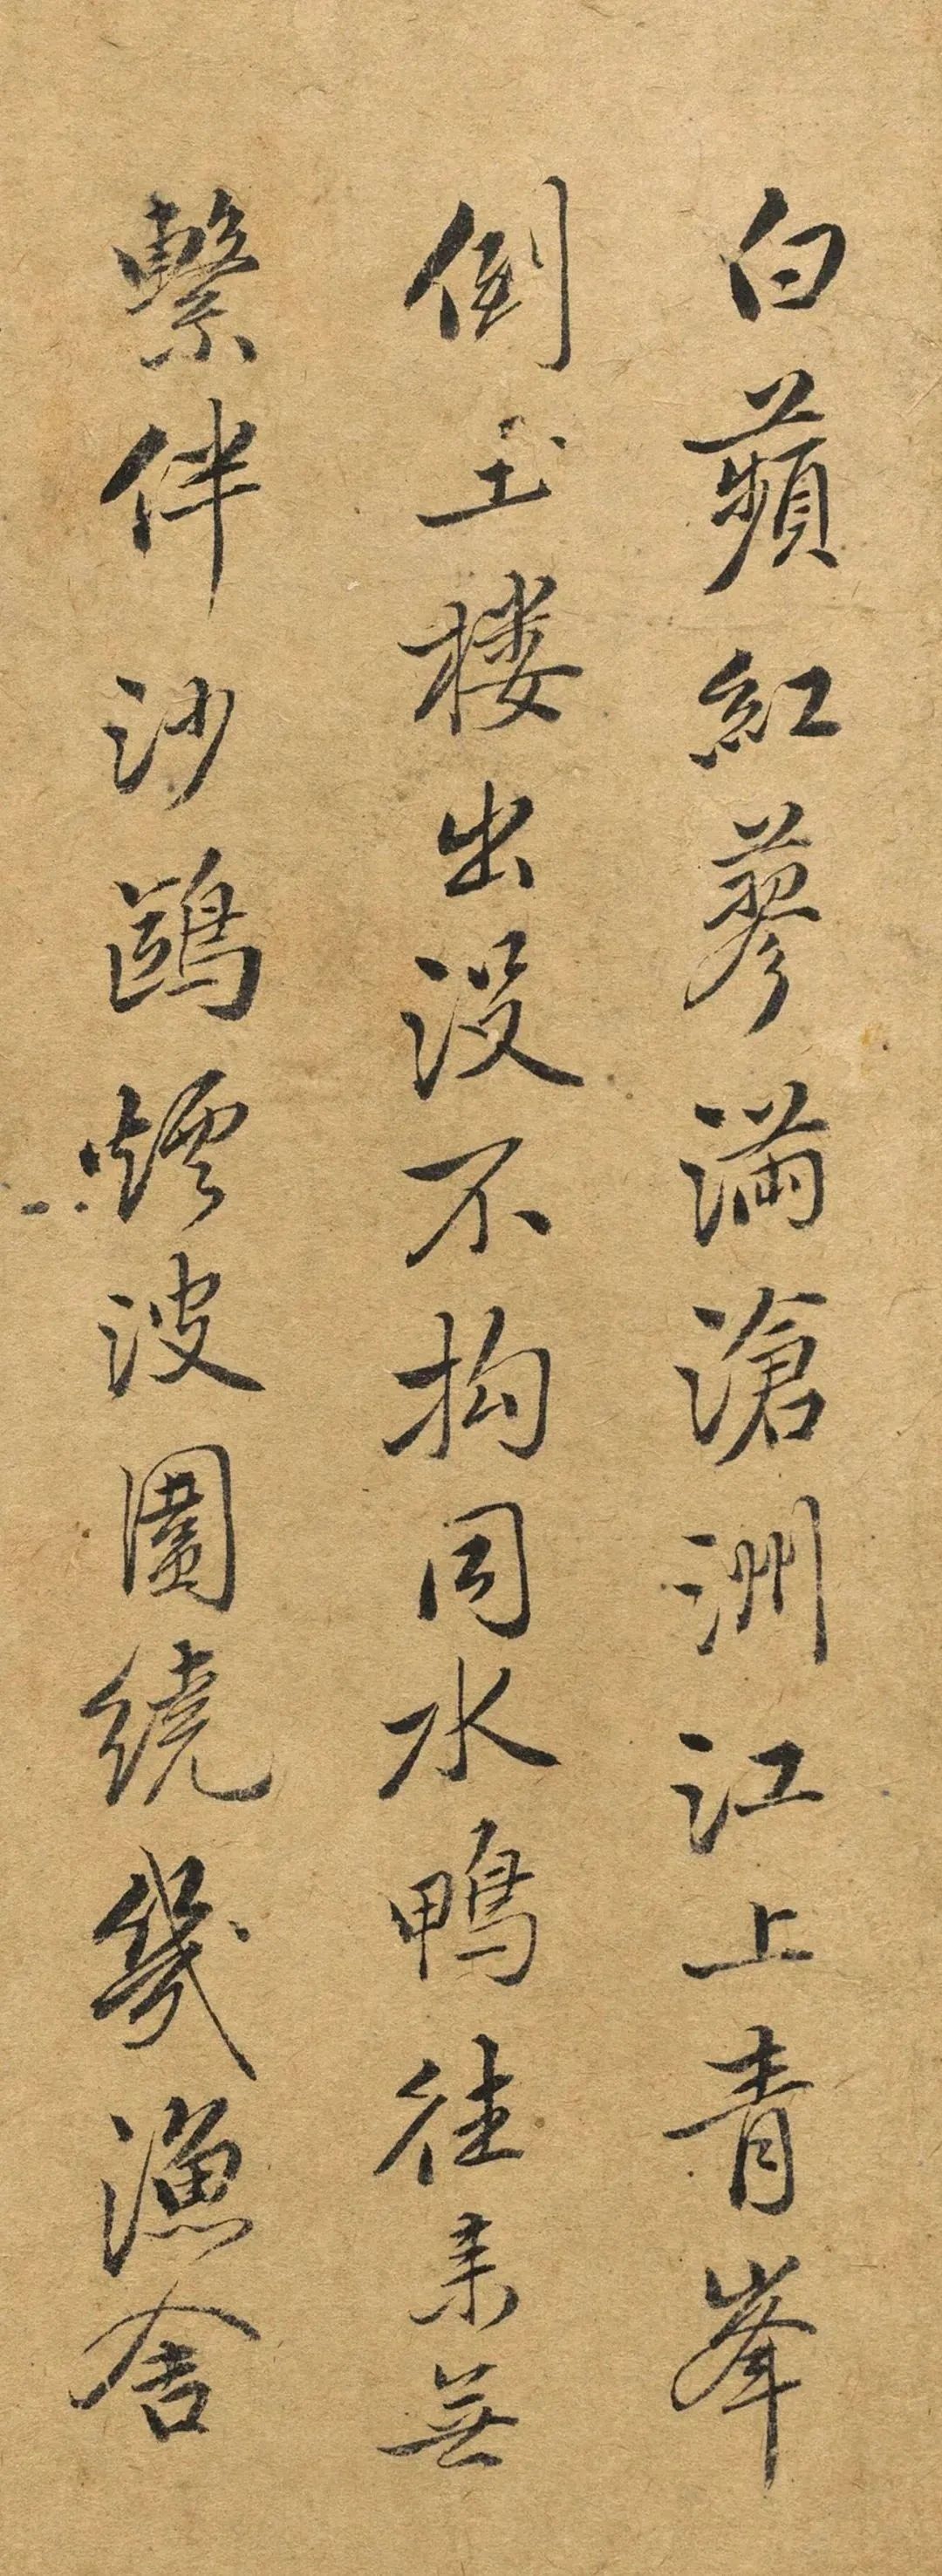 白蘋紅蓼滿滄洲江上青峯
倒玉樓出沒不拘同水鴨往來無
繫伴沙鷗煙波圍繞幾漁舍